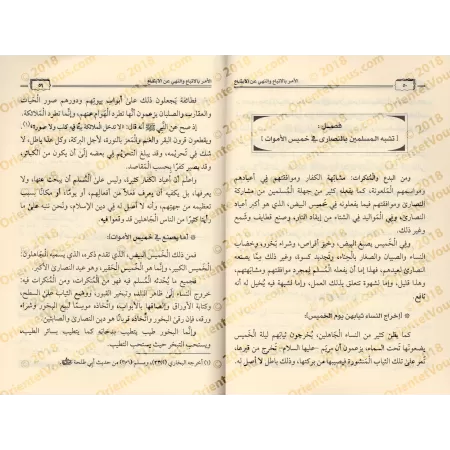 الأمر بالاتباع والنهي عن الابتداع
٥٠
فصل:
[تشبه المسلمين بالنصارى في خميس الأموات]
ومن البدع والمنكرات: مشابهة الكفار وموافقتهم في أعيادهم
ومواسمهم الملعونة، كما يفعله كثير من جهلة المسلمين من مشاركة
النصارى وموافقتهم فيما يفعلونه في خميس البيض، الذي هو أكبر أعياد
النصارى وفي المواليد في الشتاء من إيقاد النار، وصنع قطايف وشمع
وغير ذلك.
وفي الخميس يصنع البيض، وخبز أقراص، وشراء بخور، وخضاب
النساء والصبيان والصغار بالحناء، وتجديد كسوة، وغير ذلك مما يصنعه
النصارى لعيدهم، فهذا إما أن يفعله المسلم لمجرد موافقتهم ومشابهتهم،
وإما لشهوة تتعلق في نفس ذلك العمل، وإما لشبهة فيه يخيل له أنه
نافع.
* إخراج النساء ثيابهن يوم الخميس:
كما يظن كثير من النساء الجاهلين، يخرجون ثيابهم ليلة الخميس
يضعونها تحت السماء، يزعمون أن مريم -عليها السلام- تخرج من قبرها،
تمر على تلك الثياب المنشورة فيصيبها من بركتها، وذلك باطل لا أصل له
الأمر بالاتباع والنهي عن الابتداع
٥١
فطائفة يجعلون ذلك على أبواب بيوتهم ودورهم صور الحيات
والعقارب والصلبان يزعمون أنها تطرد الهوام، وإنما تطرد الملائكة.
إذ صح عن النبي ﷺ أنه قال: «لا تدخل الملائكة في فيه كلب ولا صورة»(١)
ويلقطعون قرون البقر والغنم بالنورة، لأجل البركة، وكل هذا باطل، لا
شك في تحريمه، وقد يبلغ التحريم في بعضه إلى أن يكون من الكبائر،
وقد يصير كفراً بحسب المقاصد.
واعلم أن أعياد الكفار كثيرة، وليس على المسلم أن يبحث عنها، ولا
يعرفها، بل يكفيه أن يعرف فعلاً من أفعالهم، أو يوماً، أو مكاناً بسبب
تعظيمه من جهتهم، وأنه لا أصل له في دين الإسلام، ونحن ننبه على ما
رأينا كثيراً من الناس الجاهلين قد وقعوا فيه.
* ما يصنع في خميس الأموات:
فمن ذلك: الخميس البيض، الذي تقدم ذكره، الذي يسميه الجاهلون:
الخميس الكبير، وإنما هو الخميس الحقير، وهو عيد النصارى الأكبر،
فجميع ما يحدثه المسلم فيه فهو من المنكرات، ومن المنكرات فيه:
خروج النساء إلى ظاهر البلد، وتبخير القبور، ووضع الثياب على السطح،
وكتابة الأوراق وإلصاقها بالأبواب، واتخاذه موسماً لبيع البخور وشراءه
ورقيه، فإن رقى البخور واتخاذه قرباناً هو دين النصارى والصابئين.
وإنما البخور طيب يتطيب بدخانه كما يتطيب بسائر الطيب،
ويستحب التبخر حيث يستحب التطيب.
(١) أخرجه البخاري (٣٣٢٢)، ومسلم (٢١٠٦) من حديث أبي طلحة
© 2018 OrientelVous.com